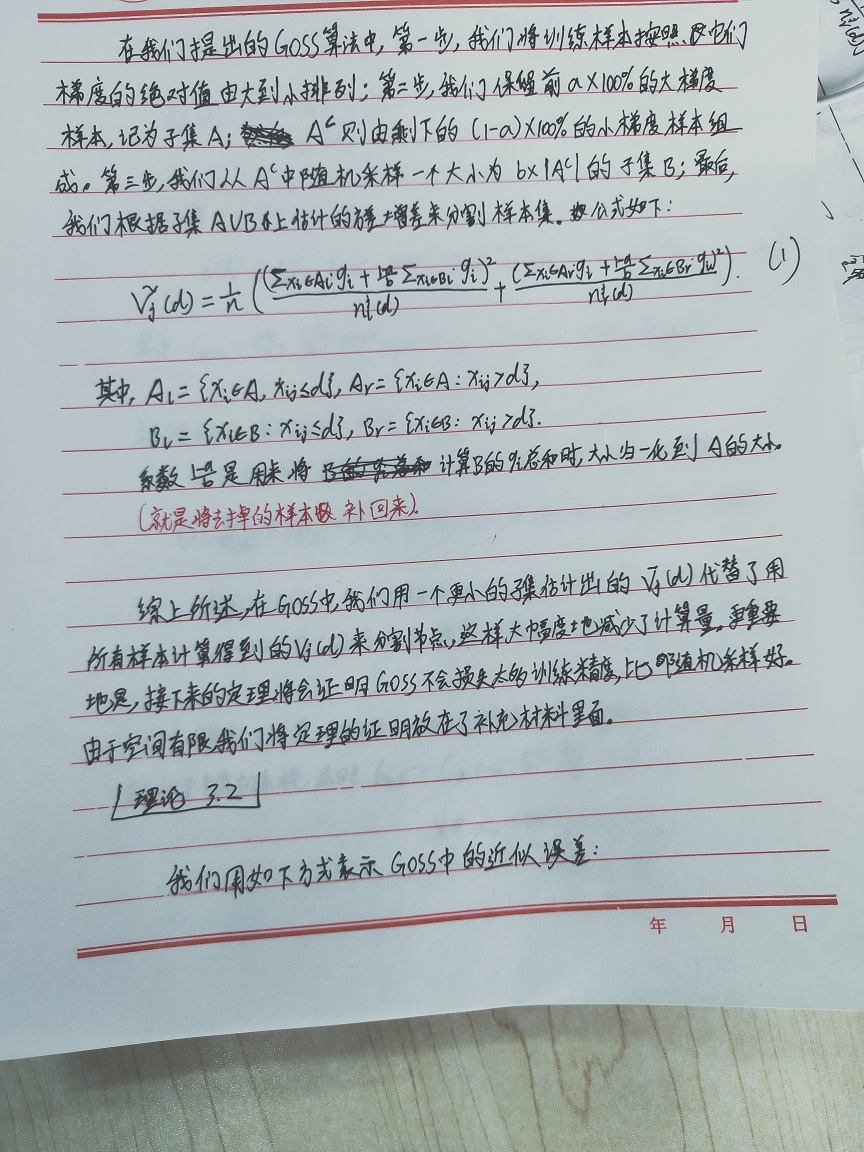 在我们提出的GOSS算法中,第一步,我们将训练样本按照它们
梯度的绝对值由大到小排列;第二步,我们保留前a×100%的大梯度
样本,记为子集A; Aᶜ则由剩下的(1-a)×100%的小梯度样本组
成。第三步,我们从Aᶜ中随机采样一个大小为b×|Aᶜ|的子集B;最后,
我们根据子集A∪B上估计的方差增差来分割样本集。公式如下:
Ṽj(d) = 1/n ( (Σxi∈Al gi + (1-a)/b Σxi∈Bl gi)² / nˡj(d) + (Σxi∈Ar gi + (1-a)/b Σxi∈Br gi)² / nʲr(d) ). (1)
其中, Al = {xi∈A, xij≤d}, Ar = {xi∈A: xij>d},
Bl = {xi∈B: xij≤d}, Br = {xi∈B: xij>d}.
系数 (1-a)/b 是用来将 计算B的gi总和时,大小归一化到A的大小。
(就是将去掉的样本数补回来).
综上所述,在GOSS中,我们用一个更小的子集估计出的 Ṽj(d) 代替了用
所有样本计算得到的Vj(d)来分割节点,这样大幅度地减少了计算量,更重要
地是,接下来的定理将会证明GOSS不会损失太的训练精度,比随机采样好。
由于空间有限我们将定理的证明放在了补充材料里面。
理论 3.2
我们用如下方式表示GOSS中的近似误差:
年 月 日